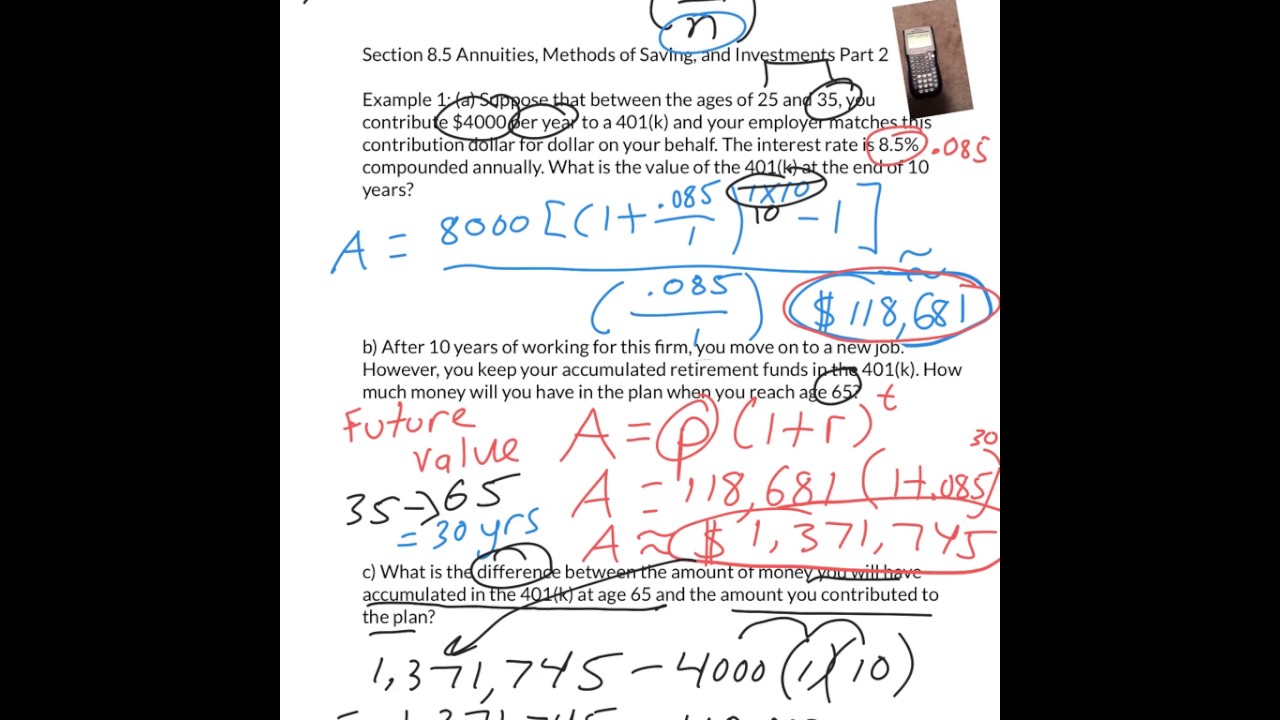 n
Section 8.5 Annuities, Methods of Saving, and Investments Part 2
Example 1: (a) Suppose that between the ages of 25 and 35, you
contribute $4000 per year to a 401(k) and your employer matches this
contribution dollar for dollar on your behalf. The interest rate is 8.5% .085
compounded annually. What is the value of the 401(k) at the end of 10
years?
A = 8000 [(1 + .085/1)^1x10 10 - 1] / (.085/1) ≈ $118,681
b) After 10 years of working for this firm, you move on to a new job.
However, you keep your accumulated retirement funds in the 401(k). How
much money will you have in the plan when you reach age 65?
Future value
A = p(1+r)^t
35→65
A = 118,681(1+.085)^30
= 30 yrs
A ≈ $1,371,745
c) What is the difference between the amount of money you will have
accumulated in the 401(k) at age 65 and the amount you contributed to
the plan?
1,371,745 - 4000(1)(10)